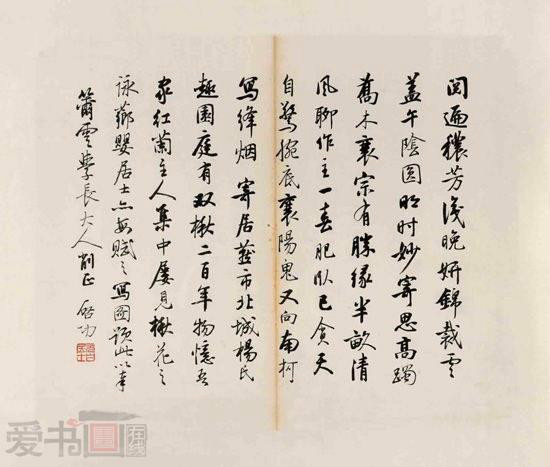 閱遍穠芳淺晚妍錦裁雲
蓋午陰圓明时妙寄思高躅
喬木衰宗有勝緣半畝清
風聊作主一春肥臥已貪天
自驚捥底襄陽鬼又向南柯
寫絳烟 寄居燕市北城楊氏
趣園庭有双楸二百年物憶吾
家紅蘭主人集中屢見楸花之
詠薌嬰居士亦每賦之寫圖題此以奉
簫雲學長大人削正 啓功
爱书画在线